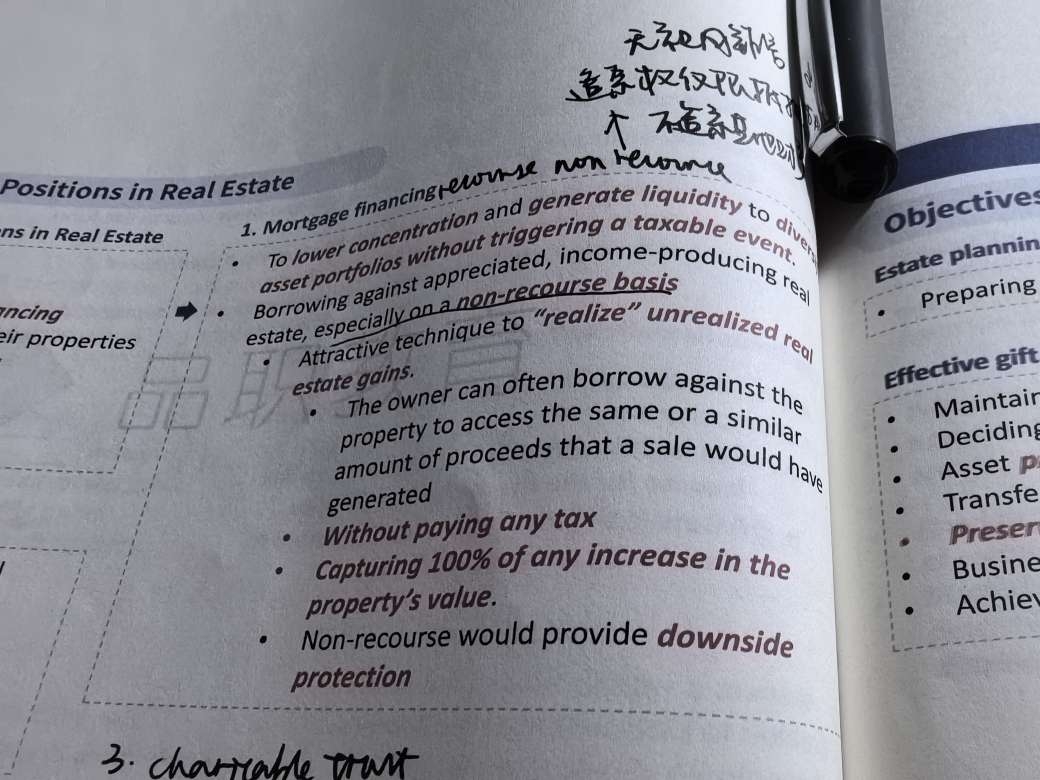 追索权仅限
↑ 不追索其他
recourse non recourse
Positions in Real Estate
ns in Real Estate
ncing
eir properties
1. Mortgage financing
• To lower concentration and generate liquidity to
asset portfolios without triggering a taxable event.
• Borrowing against appreciated, income-producing real
estate, especially on a non-recourse basis
• Attractive technique to “realize” unrealized real
estate gains.
• The owner can often borrow against the
property to access the same or a similar
amount of proceeds that a sale would have
generated
• Without paying any tax
• Capturing 100% of any increase in the
property’s value.
• Non-recourse would provide downside
protection
3. charitable trust
Objectives
Estate plannin
• Preparing
Effective gift
• Maintain
• Deciding
• Asset p
• Transfe
• Preser
• Busine
• Achiev